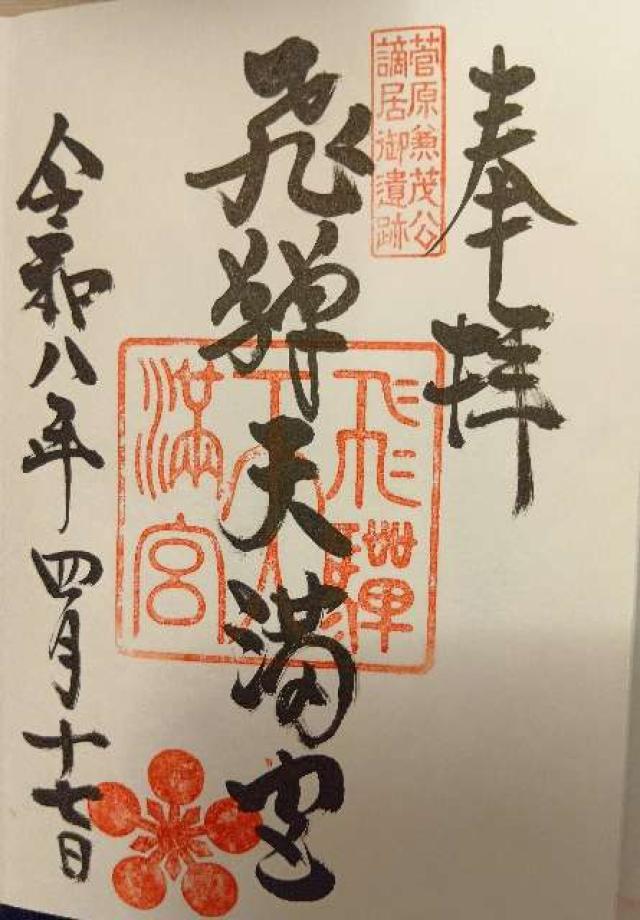 奉拝
菅原兼茂公
謫居御遺跡
飛騨天満宮
飛騨天満宮
令和八年四月十七日